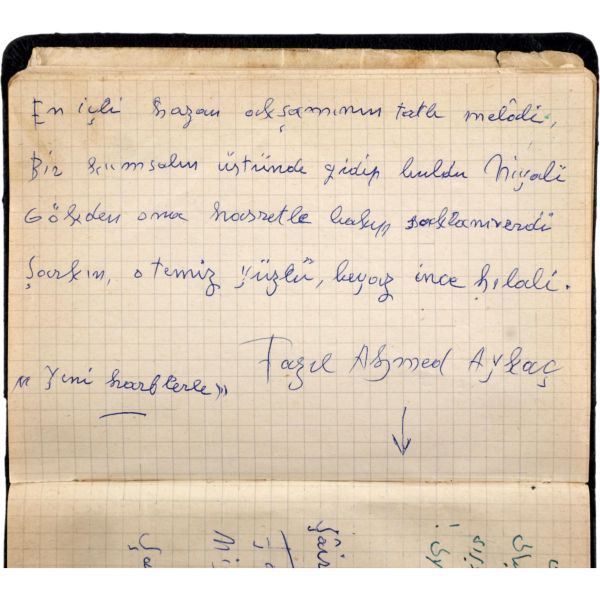 En içli hazan akşamının tatlı melôdi,
Bir kumsalın üstünde gidip buldu Niyali
Gökden ona hasretle bakıp saklanıverdi
Şarkın, o temiz yüzlü, beyaz ince hilali.
Fazıl Ahmed Aykaç
"Yeni harflerle"